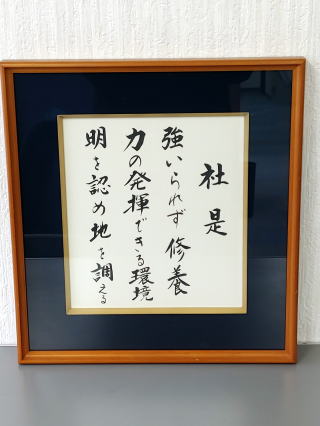 社是
強いられず修養
力の発揮できる環境
明を認め地を調える